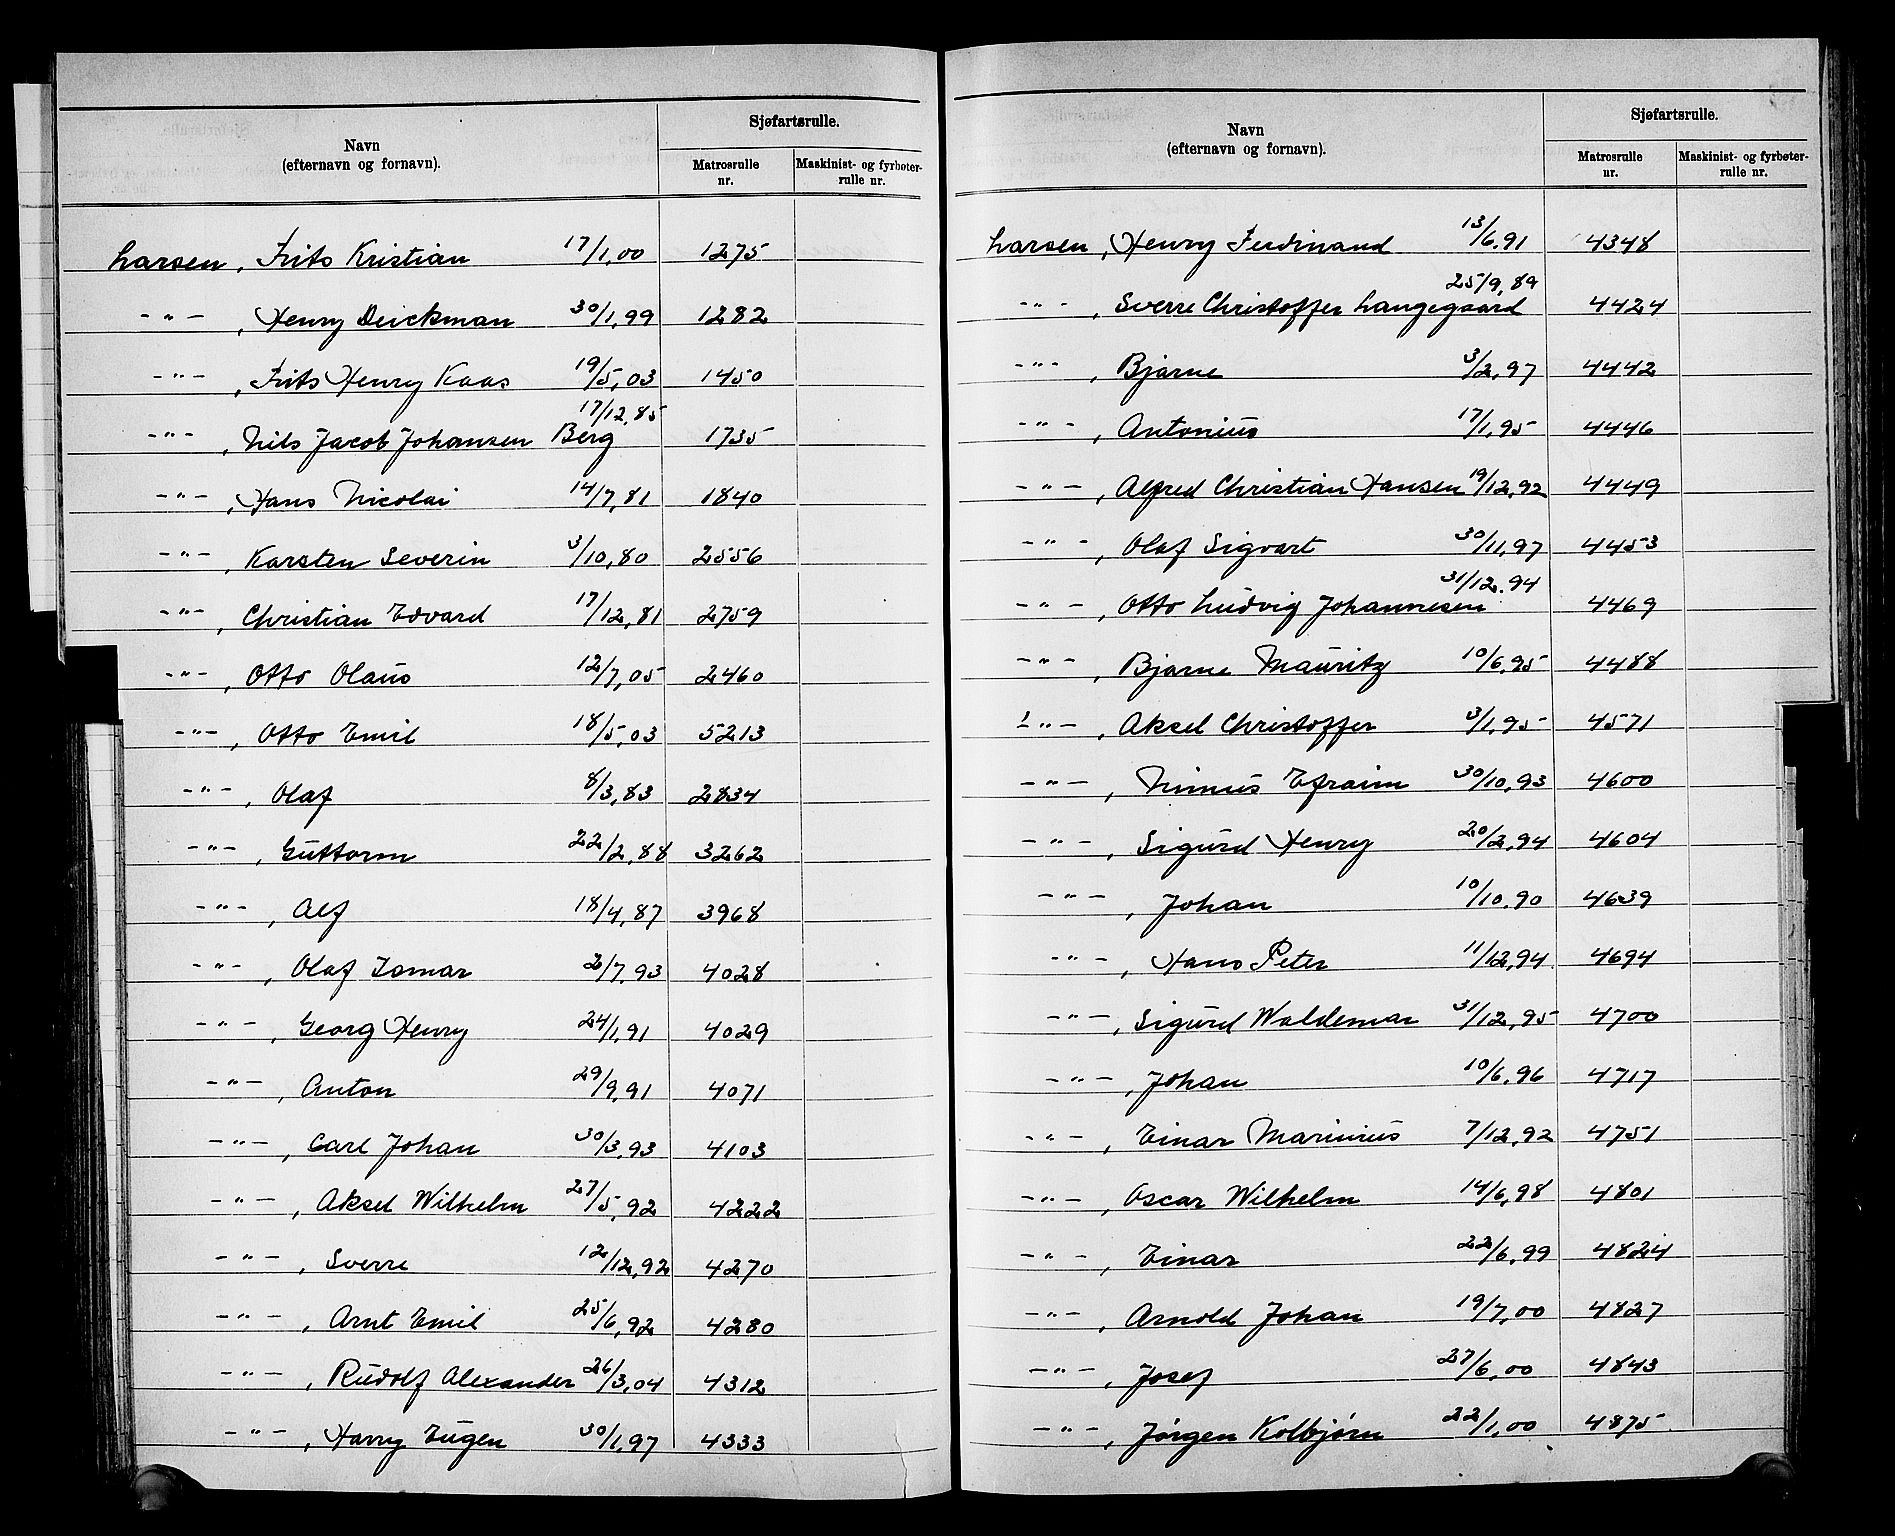 Navn
(efternavn og fornavn).
Sjøfartsrulle.
Matrosrulle nr.
Maskinist- og fyrbøter-rulle nr.
Larsen, Frits Kristian 17/1,00 1275
-"-, Henry Deickman 30/1,99 1282
-"-, Frits Henry Kaas 19/5,03 1450
-"-, Nils Jacob Johansen Berg 17/12,85 1735
-"-, Hans Nicolai 14/7,81 1840
-"-, Karsten Severin 3/10,80 2556
-"-, Christian Edvard 17/12,81 2759
-"-, Otto Olaus 12/7,05 2460
-"-, Otto Emil 18/5,03 5213
-"-, Olaf 8/3,83 2834
-"-, Guttorm 22/2,88 3262
-"-, Alf 18/4,87 3968
-"-, Olaf Ismar 2/7,93 4028
-"-, Georg Henry 24/1,91 4029
-"-, Anton 29/9,91 4071
-"-, Carl Johan 30/3,93 4103
-"-, Aksel Wilhelm 27/5,92 4222
-"-, Sverre 12/12,92 4270
-"-, Arnt Emil 25/6,92 4280
-"-, Rudolf Alexander 26/3,04 4312
-"-, Harry Eugen 30/1,97 4333
Navn
(efternavn og fornavn).
Sjøfartsrulle.
Matrosrulle nr.
Maskinist- og fyrbøter-rulle nr.
Larsen, Henry Ferdinand 13/6,91 4348
-"-, Sverre Christoffer Langegaard 25/9,89 4424
-"-, Bjarne 3/2,97 4442
-"-, Antonius 17/1,95 4446
-"-, Alfred Christian Hansen 19/12,92 4449
-"-, Olaf Sigvart 30/11,97 4453
-"-, Otto Ludvig Johannesen 31/12.94 4469
-"-, Bjarne Mauritz 10/6,95 4488
-"-, Aksel Christoffer 3/1,95 4571
-"-, Nimus Efraim 30/10,93 4600
-"-, Sigurd Henry 20/2,94 4604
-"-, Johan 10/10.90 4639
-"-, Hans Peter 11/12,94 4694
-"-, Sigurd Waldemar 31/12,95 4700
-"-, Johan 10/6,96 4717
-"-, Einar Marinius 7/12,92 4751
-"-, Oscar Wilhelm 14/6,98 4801
-"-, Einar 22/6,99 4824
-"-, Arnold Johan 19/7,00 4827
-"-, Josef 27/6,00 4843
-"-, Jørgen Kolbjørn 22/1,00 4875